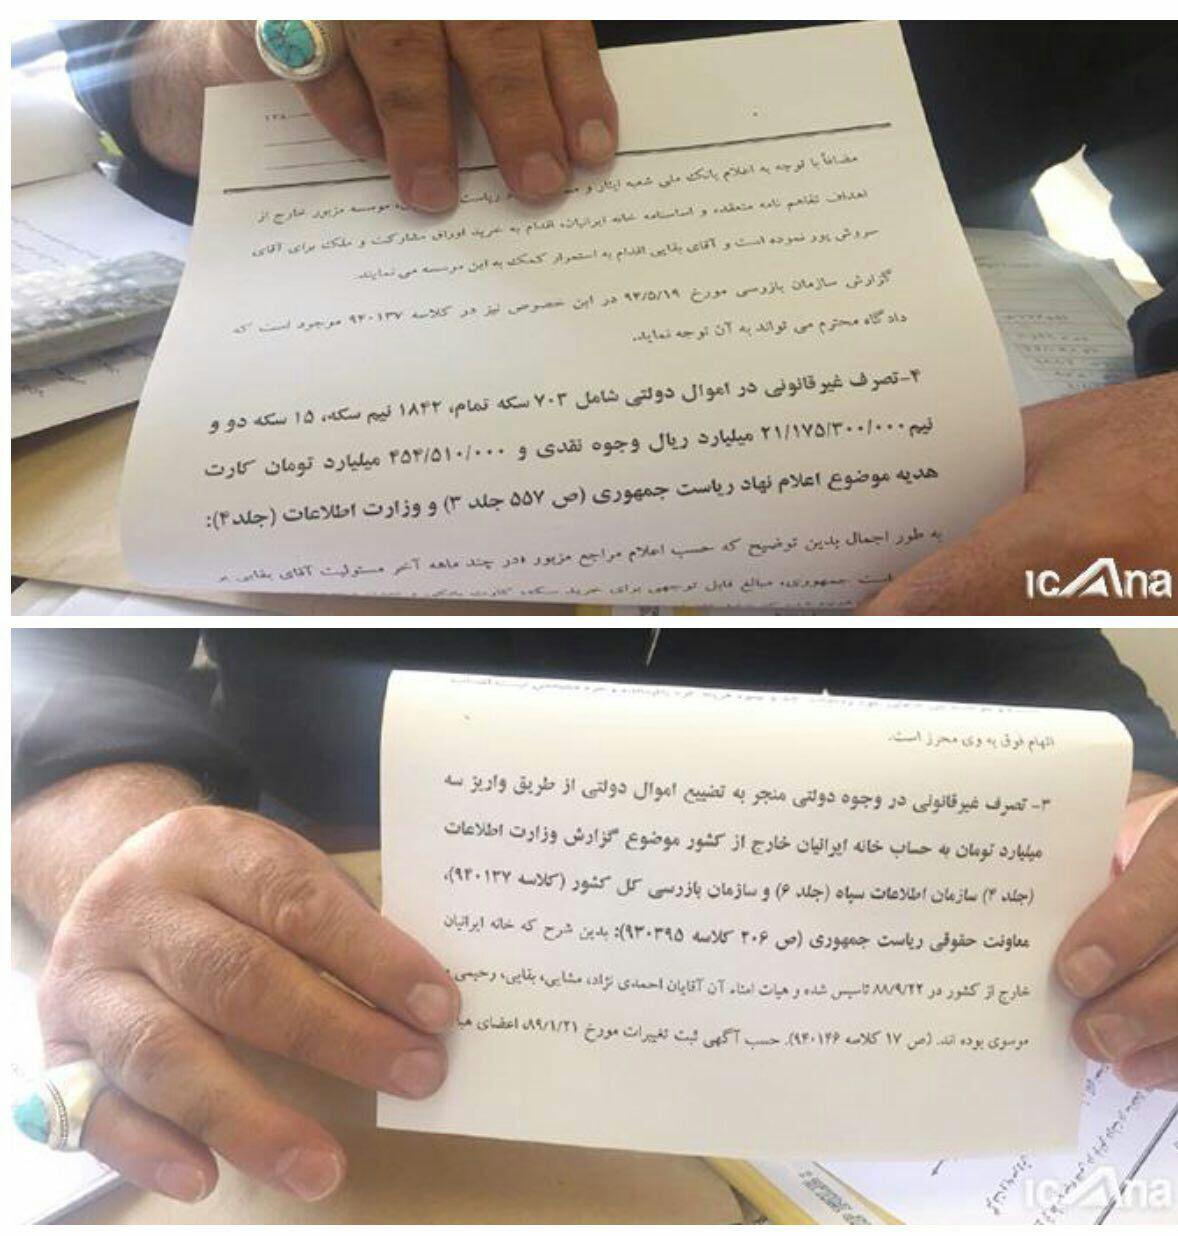 ۱۳۸
مضافاً با توجه به اعلام بانک ملی شعبه ایثار و ریاست موسسه مزبور خارج از
اهداف تفاهم نامه منعقده و اساسنامه خانه ایرانیان، اقدام به خرید اوراق مشارکت و ملک برای آقای
سروش پور نموده است و آقای بقایی اقدام به استمرار کمک به این موسسه می نمایند.
گزارش سازمان بازرسی مورخ ۹۴/۵/۱۹ در این خصوص نیز در کلاسه ۹۴۰۱۳۷ موجود است که
دادگاه محترم می تواند به آن توجه نماید.
۴-تصرف غیرقانونی در اموال دولتی شامل ۷۰۳ سکه تمام، ۱۸۴۲ نیم سکه، ۱۵ سکه دو و
نیم ۲۱/۱۷۵/۳۰۰/۰۰۰ میلیارد ریال وجوه نقدی و ۴۵۴/۵۱۰/۰۰۰ میلیارد تومان کارت
هدیه موضوع اعلام نهاد ریاست جمهوری (ص ۵۵۷ جلد ۳) و وزارت اطلاعات (جلد۴):
به طور اجمال بدین توضیح که حسب اعلام مراجع مزبور در چند ماهه آخر مسئولیت آقای بقایی بر
است جمهوری، مبالغ قابل توجهی برای خرید سکه، کارت
ICANA
اتهام فوق به وی محرز است.
۳- تصرف غیرقانونی در وجوه دولتی منجر به تضییع اموال دولتی از طریق واریز سه
میلیارد تومان به حساب خانه ایرانیان خارج از کشور موضوع گزارش وزارت اطلاعات
(جلد ۴) سازمان اطلاعات سپاه (جلد ۶) و سازمان بازرسی کل کشور (کلاسه ۹۴۰۱۳۷)،
معاونت حقوقی ریاست جمهوری (ص ۲۰۶ کلاسه ۹۳۰۳۹۵): بدین شرح که خانه ایرانیان
خارج از کشور در ۸۸/۹/۲۲ تاسیس شده و هیات امناء آن آقایان احمدی نژاد، مشایی، بقایی، رحیمی
موسوی بوده اند. (ص ۱۷ کلاسه ۹۴۰۱۴۶). حسب آگهی ثبت تغییرات مورخ ۸۹/۱/۲۱، اعضای
ICANA